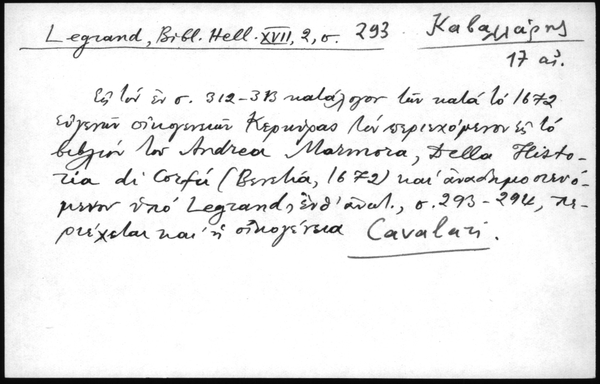 Legrand, Bibl. Hell. XVII, 2, σ. 293 Καβαλλάρης
17 αἰ.
Εἰς τὸν ἐν σ. 312-313 κατάλογον τῶν κατὰ τὸ 1672
εὐγενῶν οἰκογενειῶν Κερκύρας τὸν περιεχόμενον εἰς τὸ
βιβλίον τοῦ Andrea Marmora, Della Histo-
ria di Corfú (Venetia, 1672) καὶ ἀναδημοσιευό-
μενον ὑπὸ Legrand, ἔνθ' ἀνωτ., σ. 293-294, πε-
ριέχεται καὶ ἡ οἰκογένεια Cavalari.